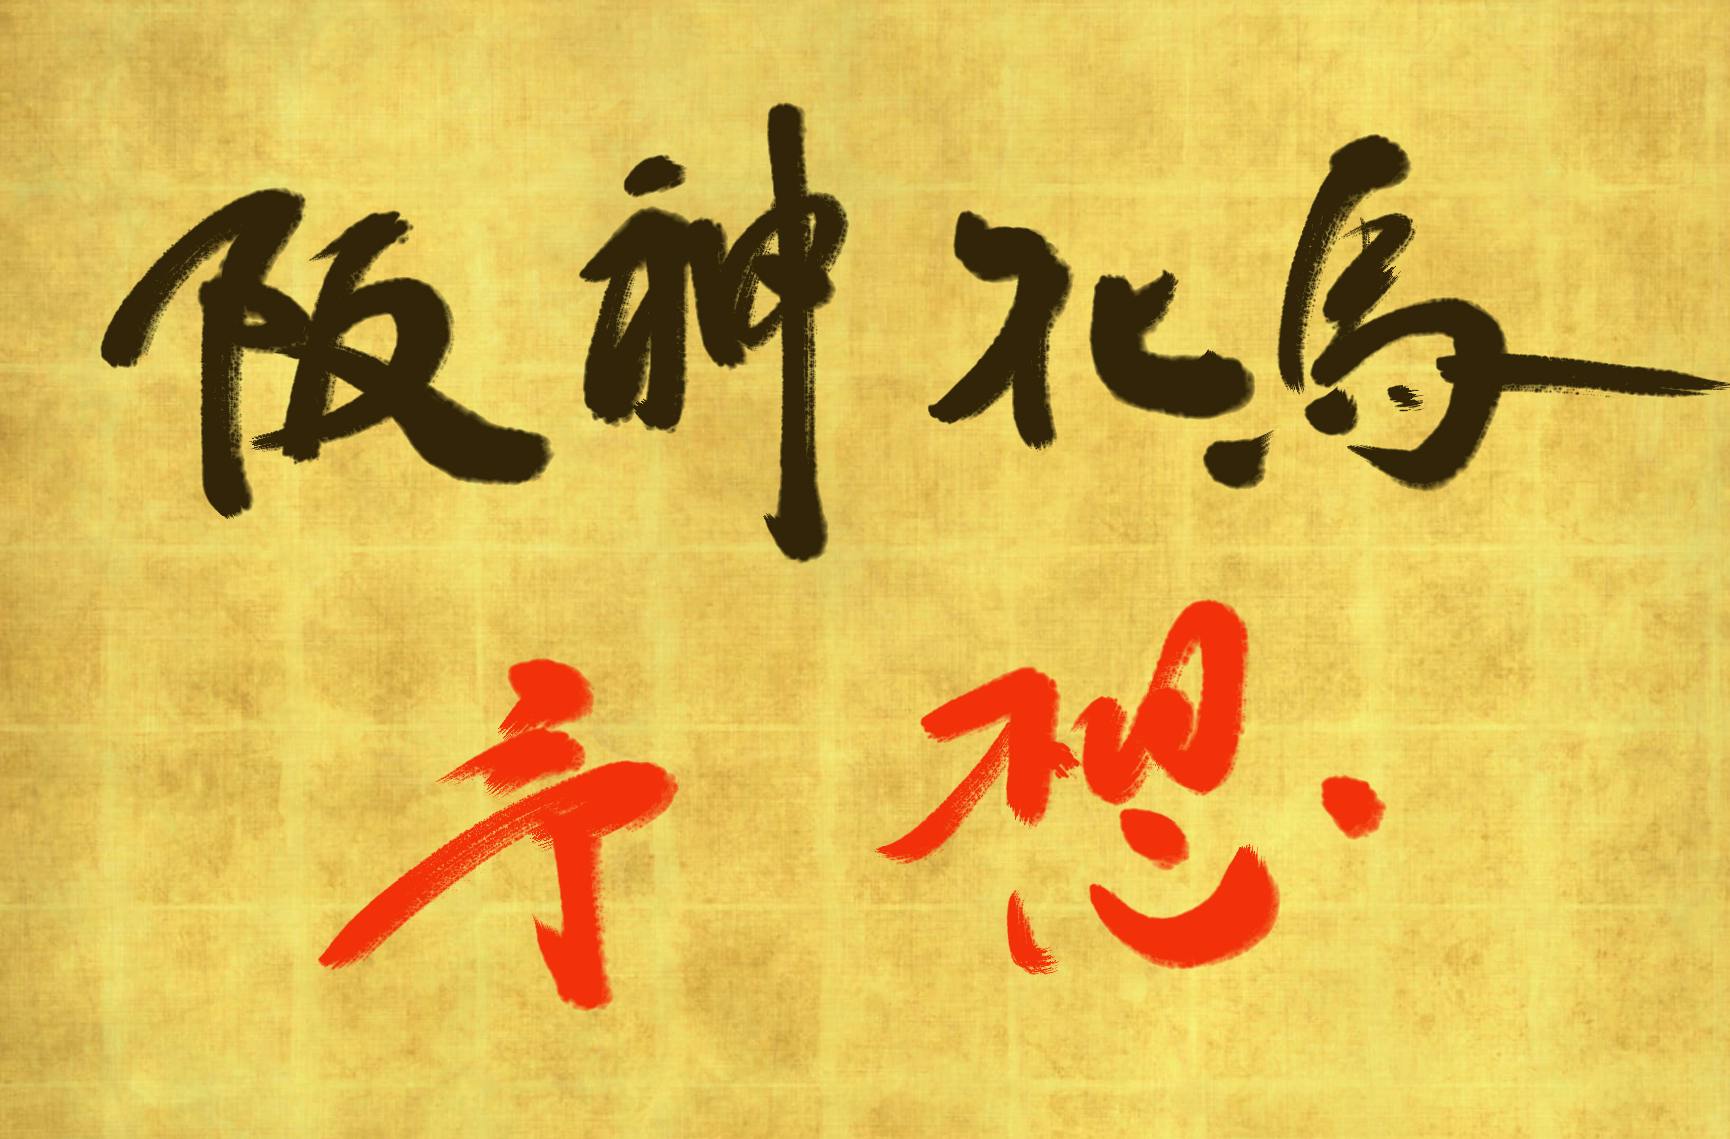 阪神牝馬
予想